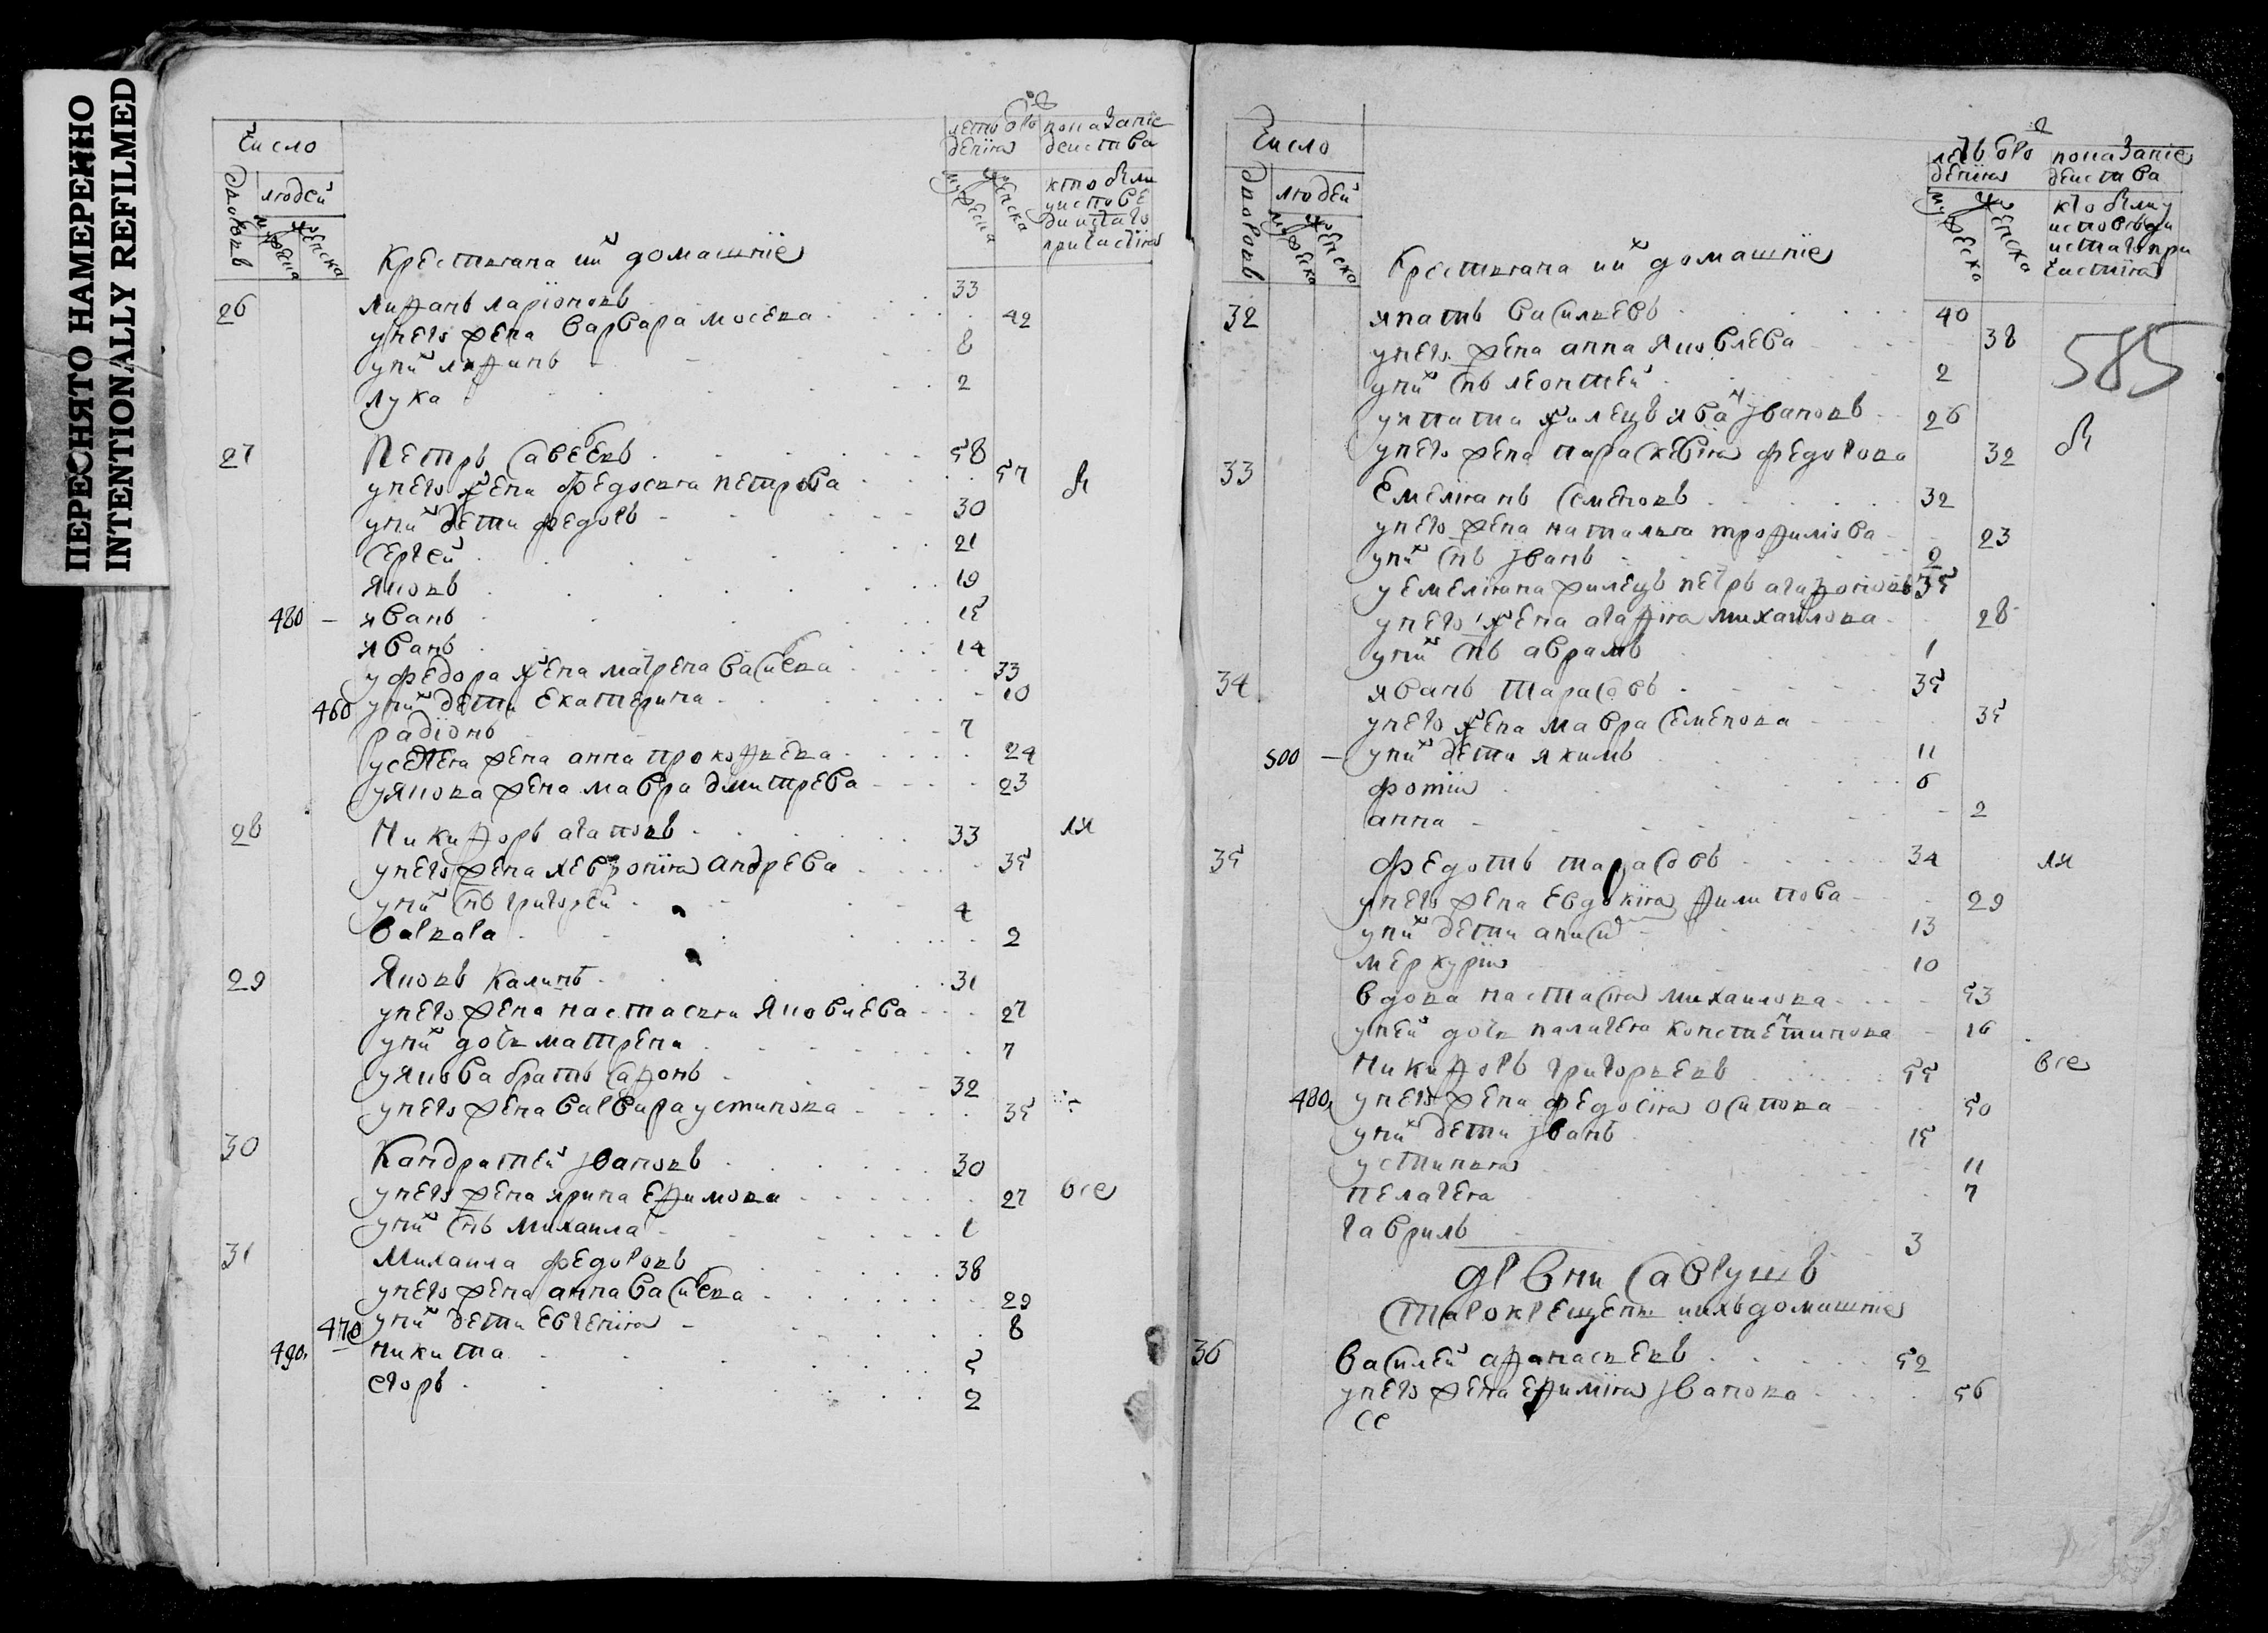 ПЕРЕСНЯТО НАМЕРЕННО
INTENTIONALLY REFILMED
Число
лето ро показание
дения действа
дворовъ
людей
мужеска
женска
мужеска
женска
кто были
у исповеди и стаго
причастия
Крестьяня и их домашние
26 Лифанъ Ларионовъ 33
у него жена Варвара Мосеева 42
у них Лифинъ 8
Лука 2
27 Петръ Савельевъ 58
у него жена Федосья Петрова 57 бы
у них дети Федоръ 30
Сергей 21
Яковъ 19
480 Иванъ 15
Иванъ 14
у Федора жена Матрена Васильева 33
460 у них дети Екатерина 10
Радионъ 7
у Сергея жена Анна Прокофьева 24
у Якова жена Мавра Дмитрева 23
28 Никифоръ Агаповъ 33 ли
у него жена Хеврония Андрева 35
у них снъ Григорей 4
Варвара 2
29 Яковъ Калинъ 31
у него жена Настасья Яковлева 27
у них дочь Матрена 7
у Якова братъ Сафонъ 32
у него жена Варвара Устинова 35
30 Кандратей Ивановъ 30
у него жена Ирина Ефимова 27 все
у них снъ Михаила 1
31 Михаила Федоровъ 38
у него жена Анна Васильева 29
470 у них дети Евгения 8
490 Никита 5
Егоръ 2
Число
летъ ро показание
дения действа
дворовъ
людей
мужеска
женска
мужеска
женска
кто были у
исповеди
и стаго при
частия
Крестьяня и их домашние
585
32 Ипатъ Васильевъ 40
у него жена Анна Яковлева 38
у них снъ Леонтей 2
у Ипата жилецъ Иванъ Ивановъ 26
у него жена Параскевия Федорова 32 бы
33 Емелианъ Семеновъ 32
у него жена Наталья Трофимова 23
у них снъ Иванъ 2
у Емелиана жилецъ Петръ 35
у него жена Агафия Михайлова 28
у них снъ Аврамъ 1
34 Иванъ Тарасовъ 35
у него жена Мавра Семенова 35
500 у них дети Якимъ 11
Фотий 6
Анна 2
35 Федотъ Тарасовъ 34 ли
у него жена Евдокия Филипова 29
у них дети Аниси 13
Меркурий 10
Вдова Настасия Михайлова 53
у ней дочь Палагея Констентинова 16
Никифоръ Григорьевъ 55 все
480 у него жена Федосия Осипова 50
у них дети Иванъ 15
Устинья 11
Пелагея 7
Гаврилъ 3
Дрвни Саврушъ
Старокрещены и ихъ домашние
36 Василей Афанасьевъ 52
у него жена Ефимия Иванова 56
се